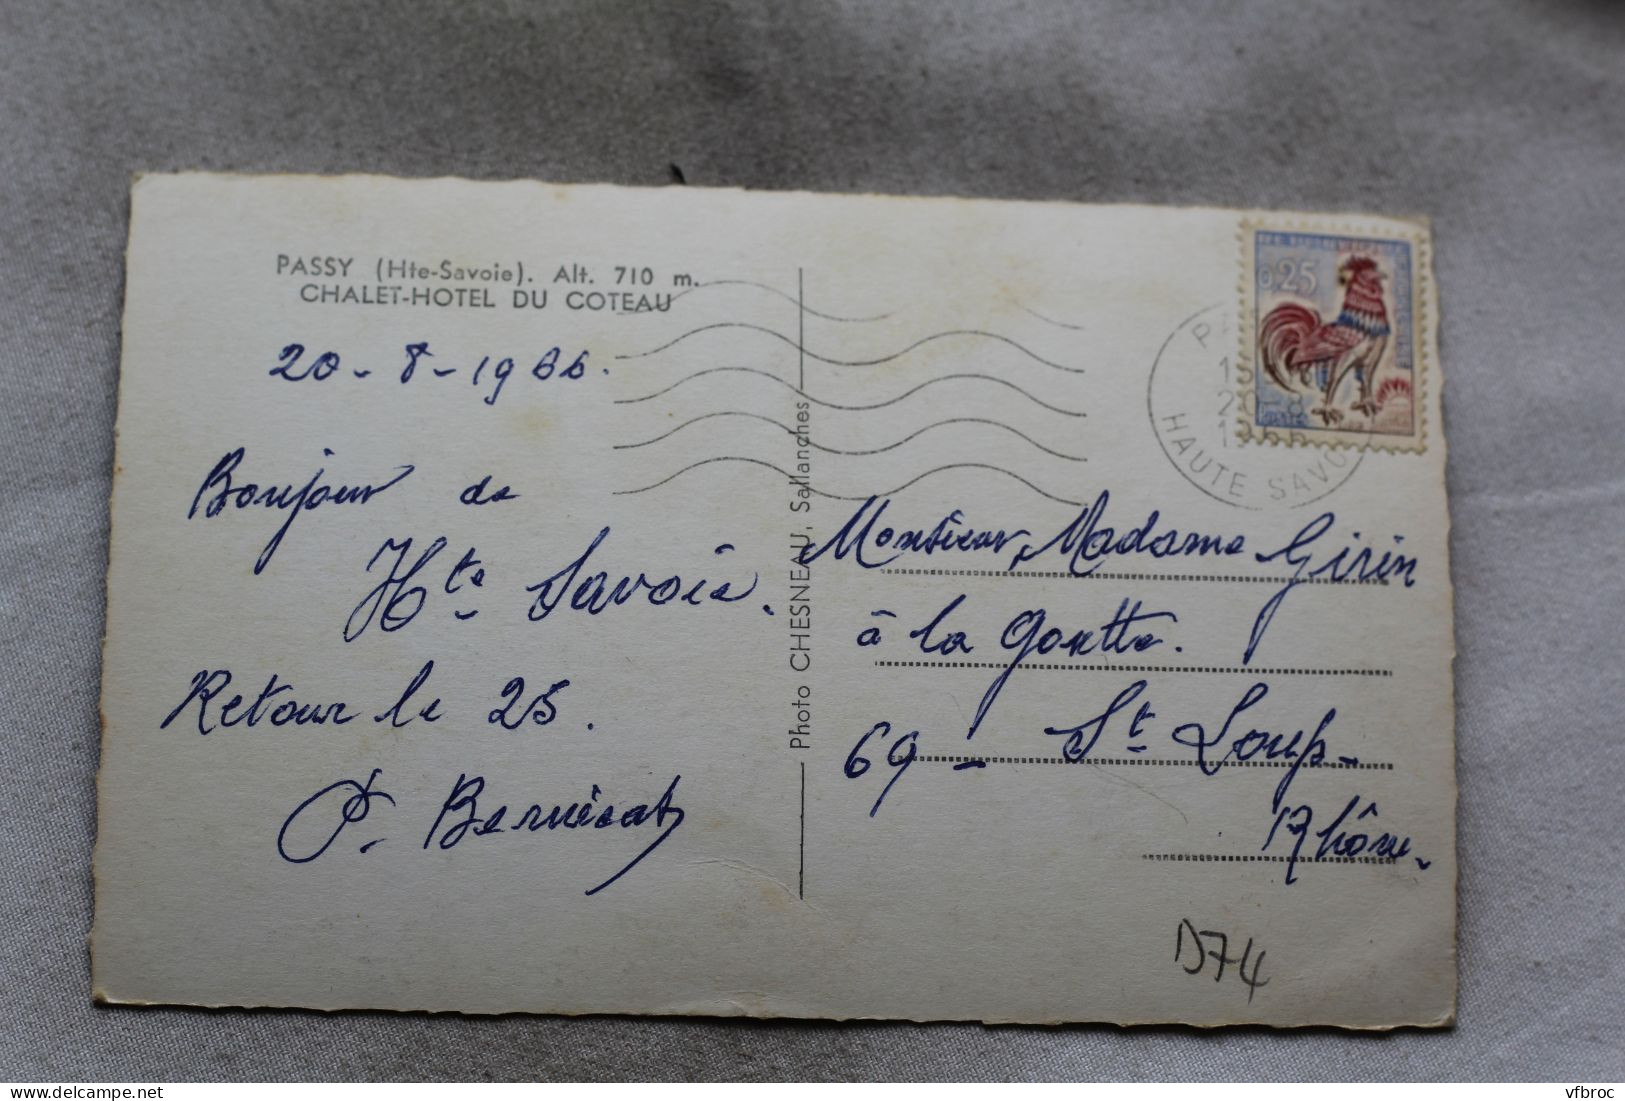 PASSY (Hte-Savoie). Alt. 710 m.
CHALET-HOTEL DU COTEAU
20-8-1966.
Bonjour de
Hte Savoie.
Retour le 25.
P. Bernicat
Photo CHESNEAU, Sallanches
0,25
POSTES
HAUTE SAVOIE
Monsieur, Madame Girin
à la Goutte.
69 - St Loup-
Rhône.
D74
vfbroc